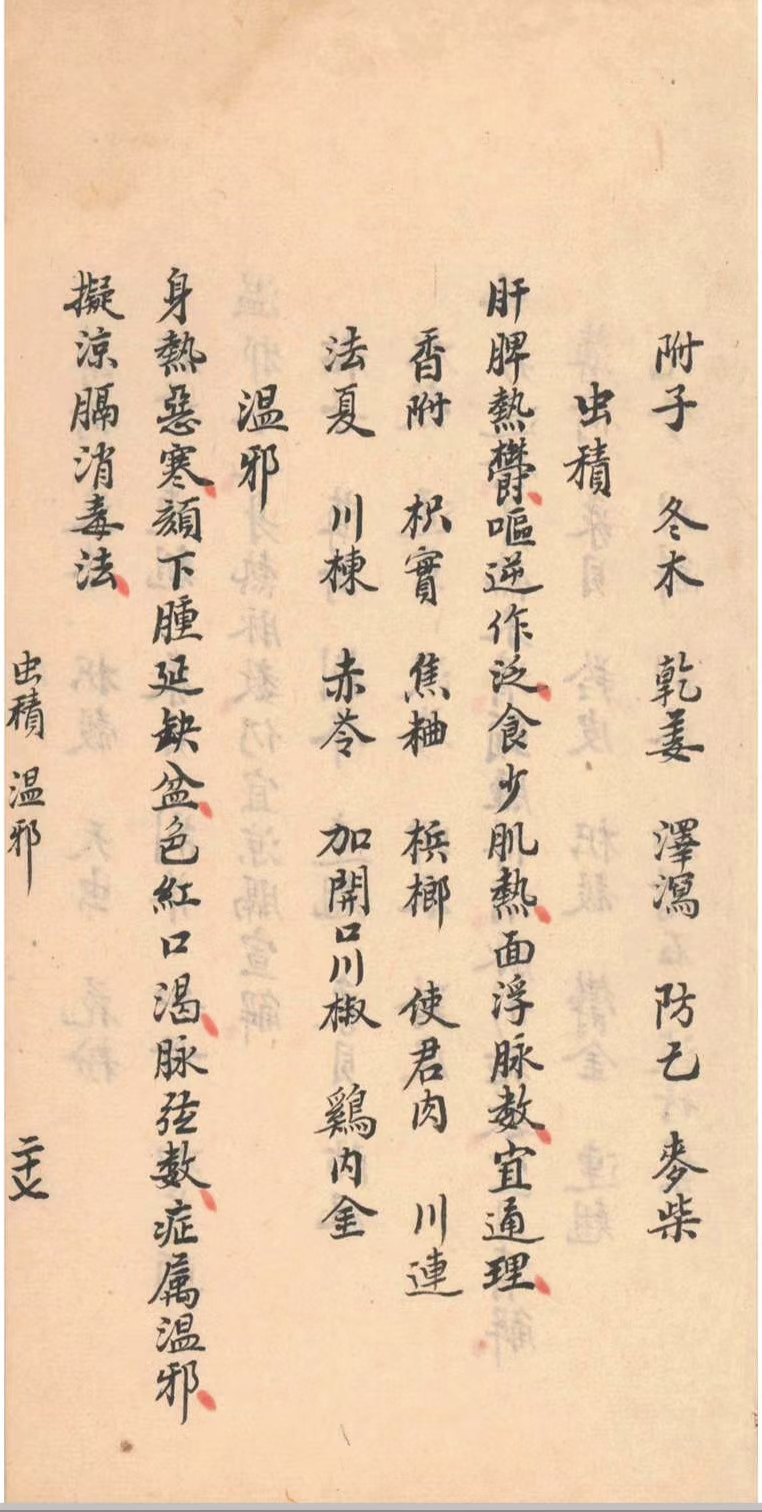 附子 冬木 乾姜 澤瀉 防己 麥柴
虫積
肝脾熱鬱嘔逆作泛食少肌熱面浮脉数宜通理
香附 枳實 焦粬 梹榔 使君肉 川連
法夏 川楝 赤苓 加開口川椒 鷄内金
温邪
身熱惡寒頷下腫延缺盆色紅口渴脉弦數症属温邪
擬凉膈消毒法
虫積 温邪 二十七